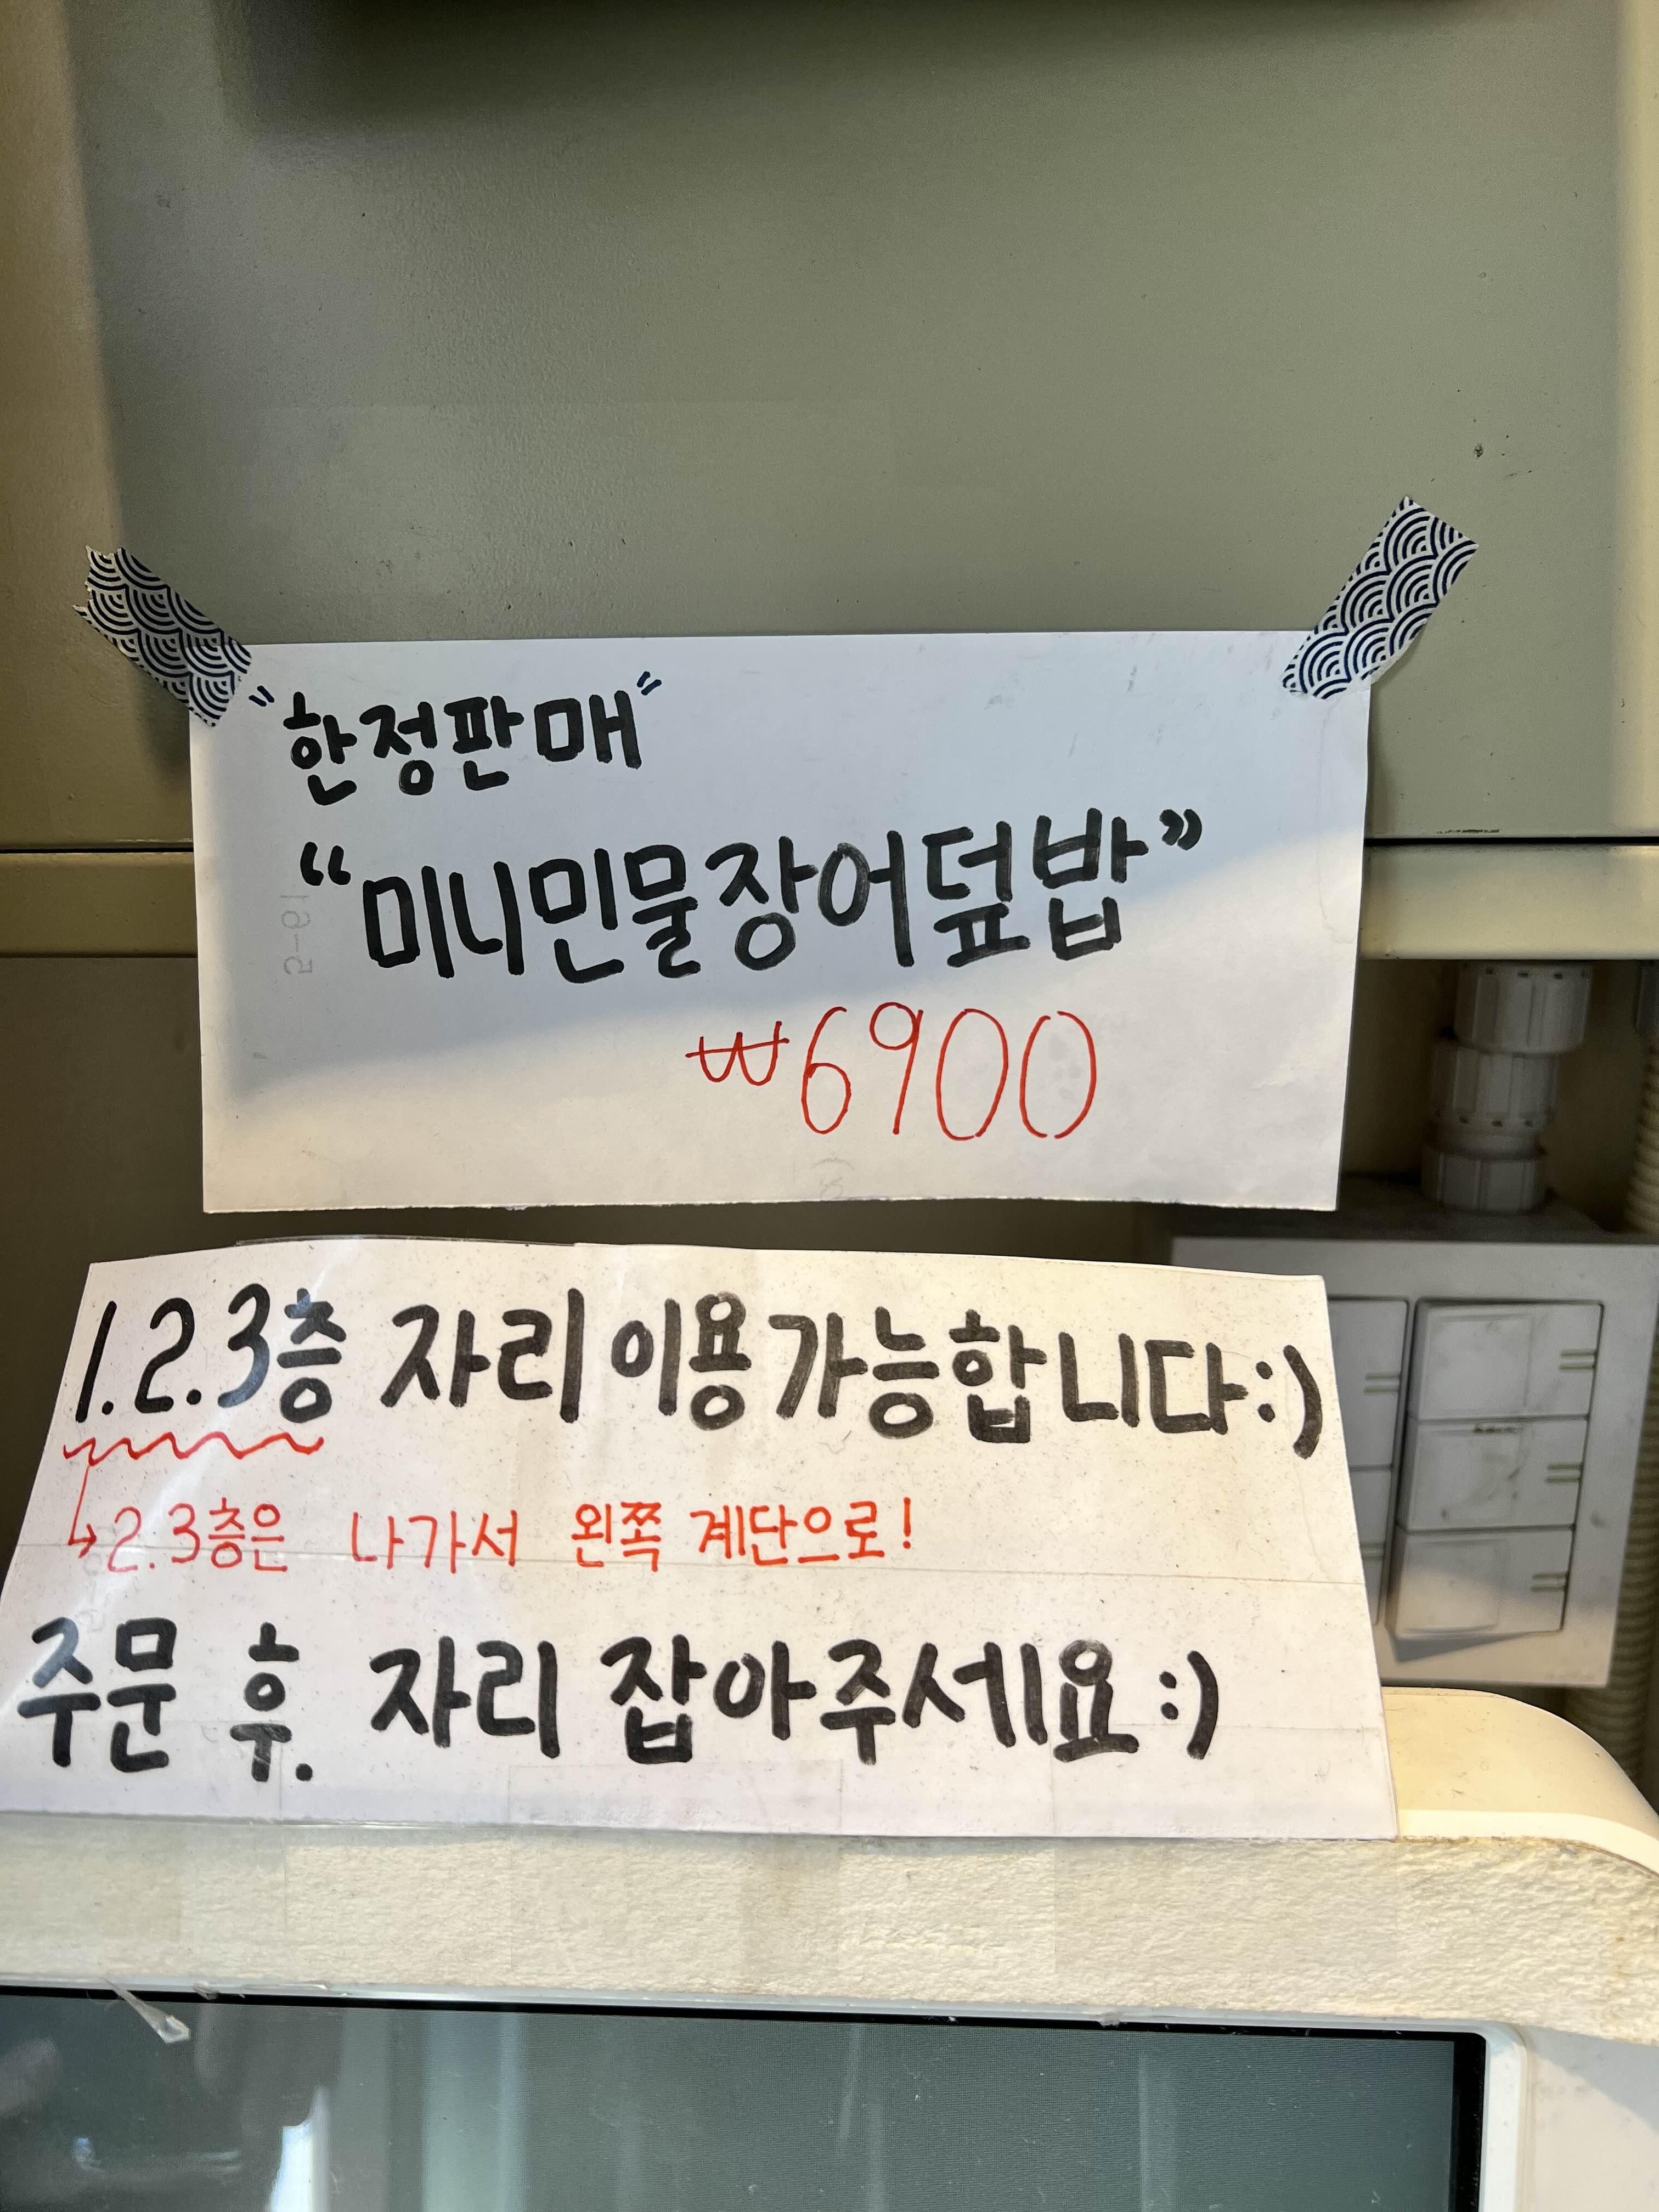 "한정판매"
“미니민물장어덮밥”
₩6900
1.2.3층 자리 이용가능합니다:)
↳2.3층은 나가서 왼쪽 계단으로!
주문 후. 자리 잡아주세요:)